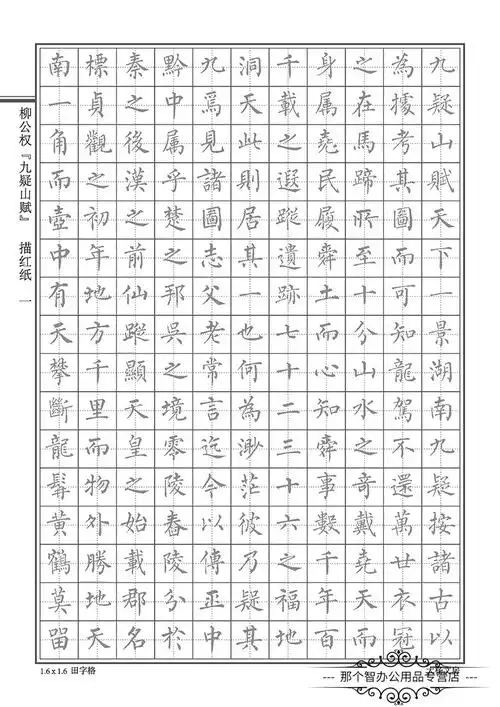 九疑山賦天下一景湖南九疑按諸古以
為據考其圖而可知龍駕不還萬廿衣冠
之在馬蹄所至十分山水之奇戴堯天而
身属堯民履舜土而心知舜事數千年百
千載之遐蹤遺跡七十二三十六之福地
洞天此則居其一也何為渺茫彼乃疑其
九爲見諸圖志父老常言迄今以傳正中
黔中属乎楚之邦吳之境零陵舂陵分於
秦之後漢之前仙蹤顯天皇之始載郡名
標貞觀之初年地方千里而物外勝地天
南一角而壺中有天攀斷龍髯黃鶴莫留
柳公权『九疑山赋』 描红纸 一
1.6x1.6 田字格
--- 那个智办公用品专营店 ---